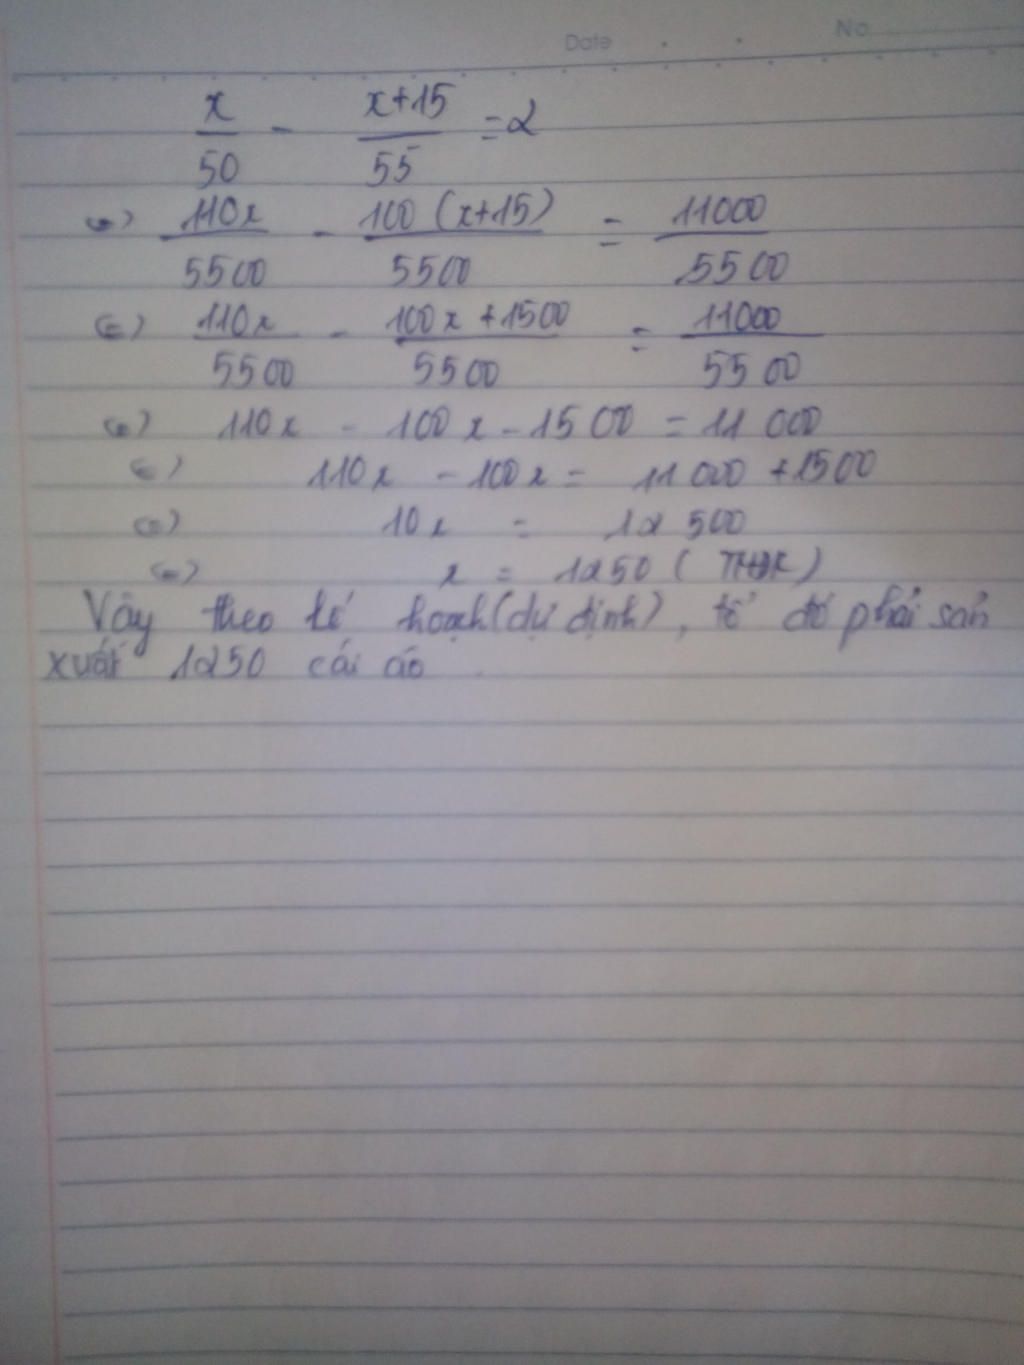 Date No
x/50 - (x+15)/55 = 2
<=> 110x/5500 - 100(x+15)/5500 = 11000/5500
<=> 110x/5500 - (100x+1500)/5500 = 11000/5500
<=> 110x - 100x - 1500 = 11 000
<=> 110x - 100x = 11 000 + 1500
<=> 10x = 12 500
<=> x = 1250 (TMĐK)
Vậy theo kế hoạch (dự định), tổ đó phải sản
xuất 1250 cái áo.